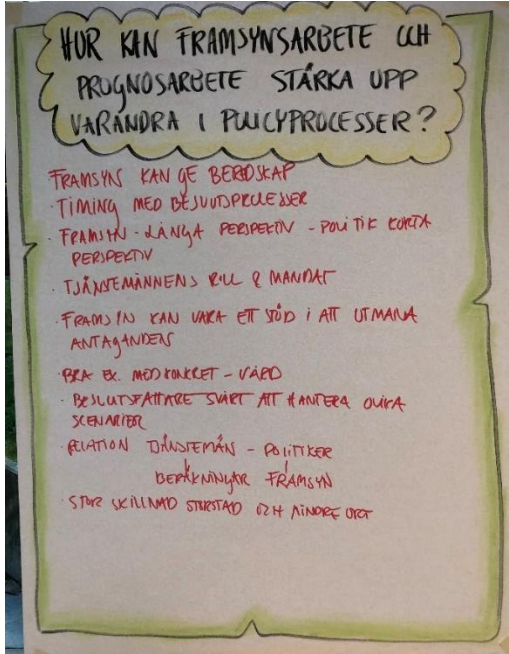 HUR KAN FRAMSYNSARBETE OCH
PROGNOSARBETE STÄRKA UPP
VARANDRA I POLICYPROCESSER?
FRAMSYN KAN GE BEREDSKAP
· TIMING MED BESLUTSPROCESSER
· FRAMSYN - LÅNGA PERSPEKTIV - POLITIK KORTA
PERSPEKTIV
· TJÄNSTEMÄNNENS ROLL & MANDAT
· FRAMSYN KAN VARA ETT STÖD I ATT UTMANA
ANTAGANDENS
· BRA EX. MED KONKRET - VÅRD
· BESLUTSFATTARE SVÅRT ATT HANTERA OLIKA
SCENARIER
· RELATION TJÄNSTEMÄN - POLITIKER
BERÄKNINGAR FRAMSYN
· STOR SKILLNAD STORSTAD OCH MINDRE ORT